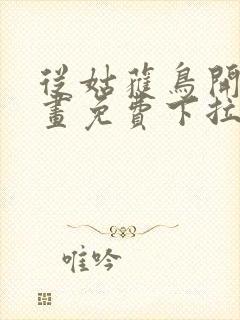 從姑獲鳥開
畫免費下拉
唯吟